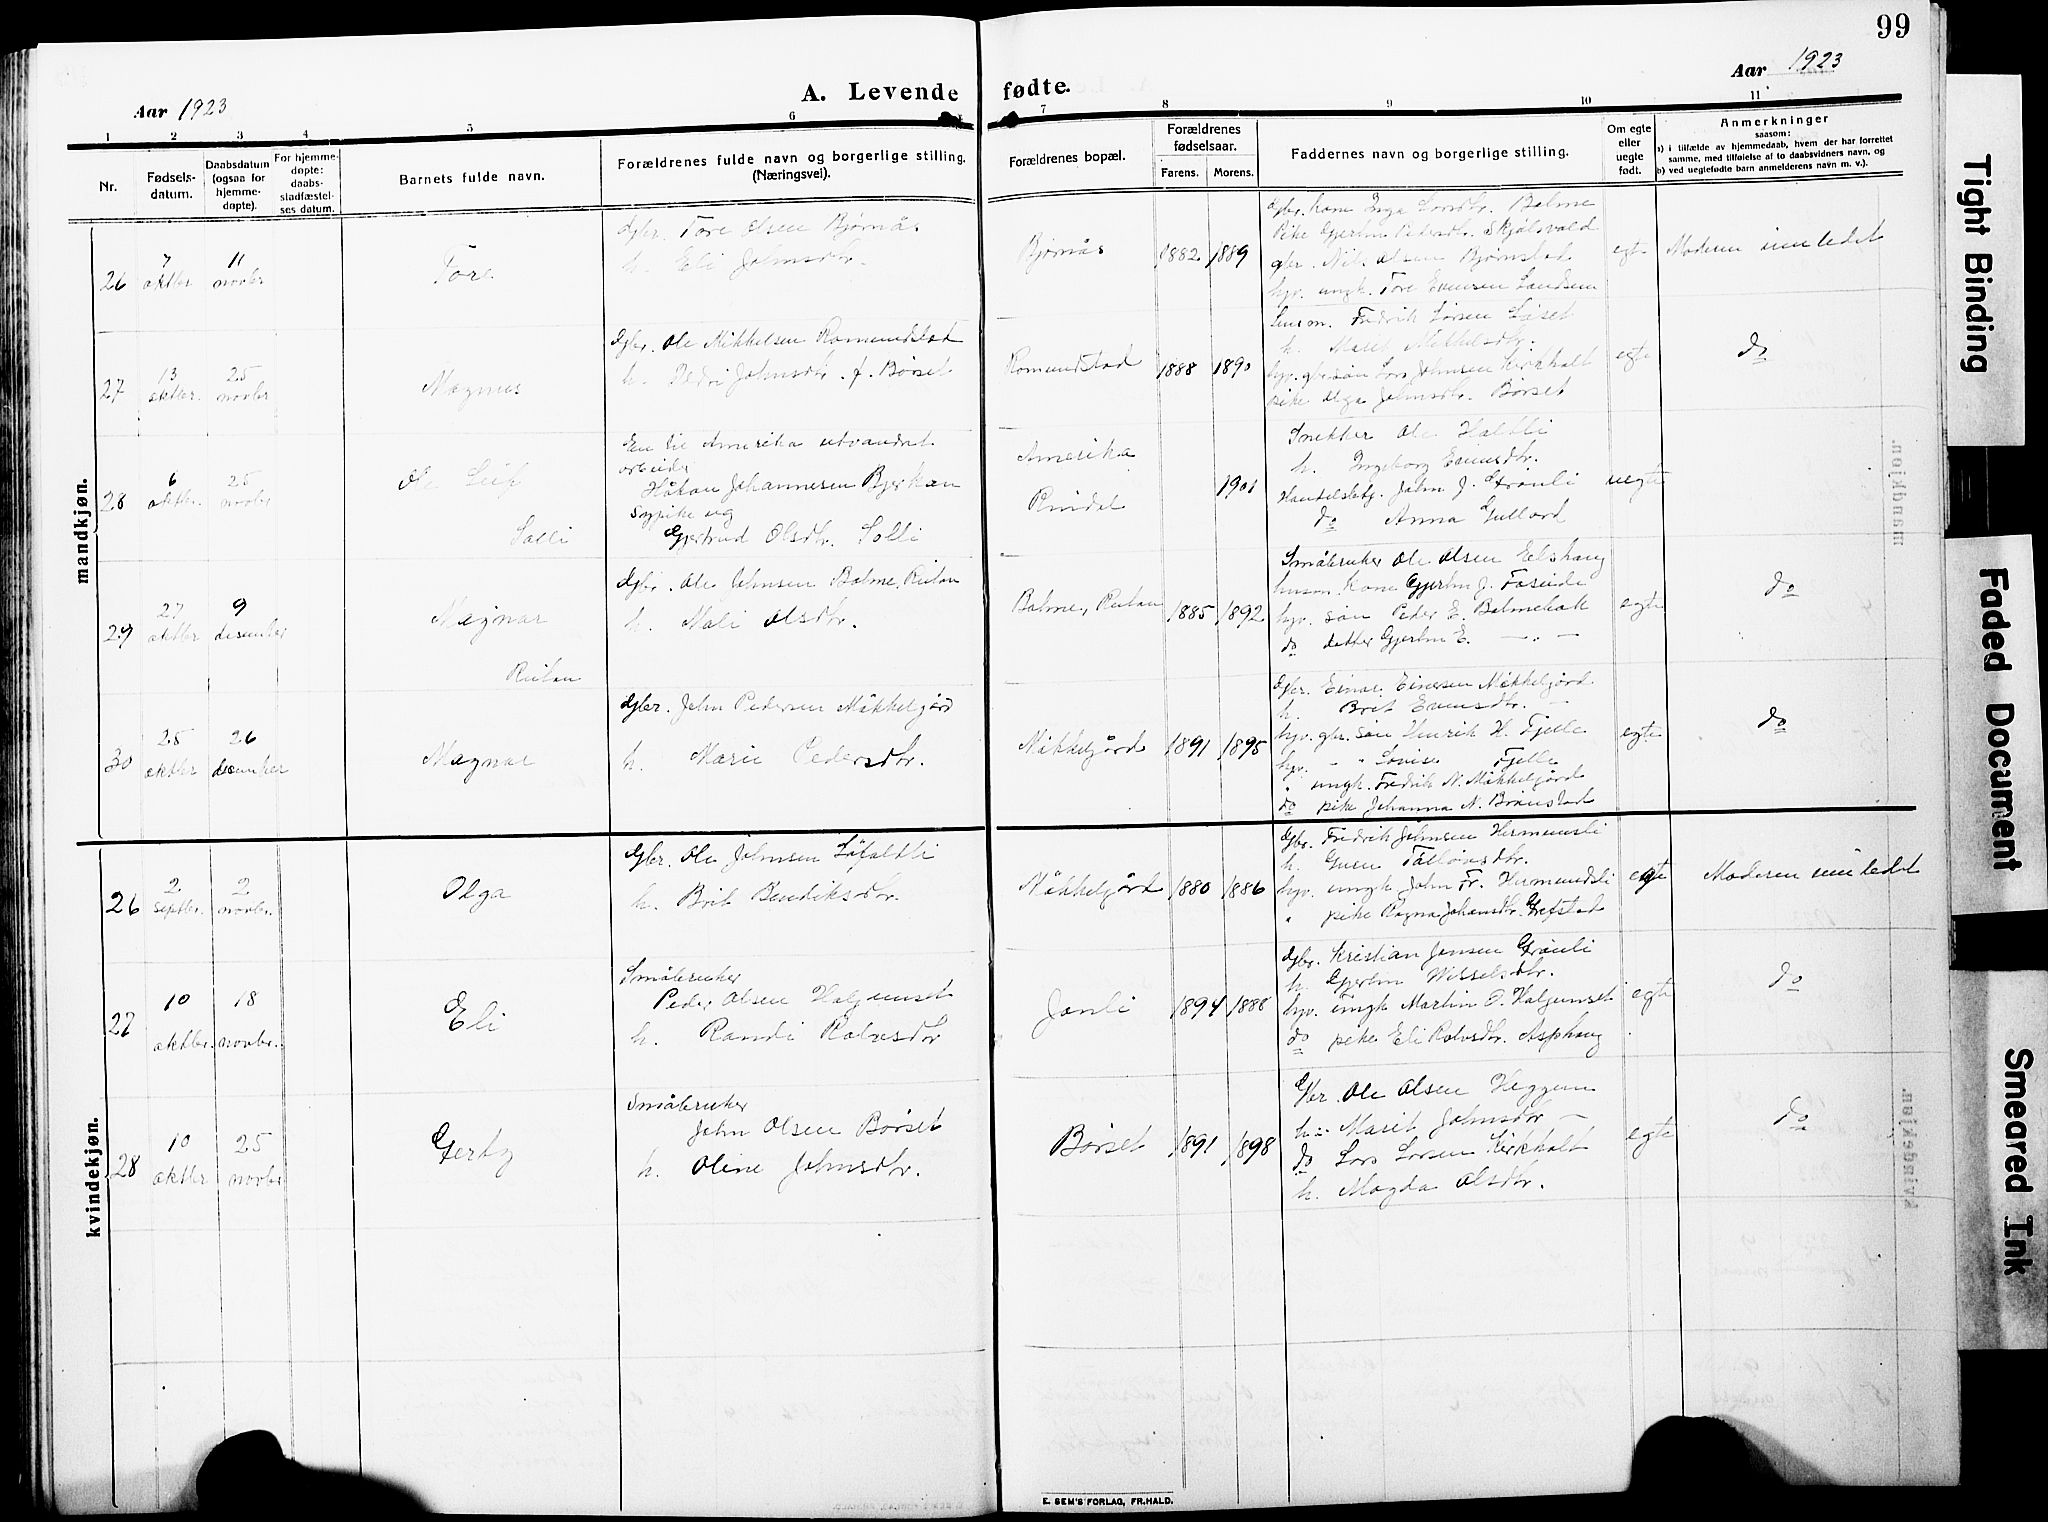 99
Aar 1923
A. Levende fødte.
Aar 1923
1 2 3 4 5 6 7 8 9 10 11
Nr.
Fødsels-
datum.
Daabsdatum
(ogsaa for
hjemme-
døpte).
For hjemme-
døpte:
daabs-
stadfæstel-
ses datum.
Barnets fulde navn.
Forældrenes fulde navn og borgerlige stilling.
(Næringsvei).
Forældrenes bopæl.
Forældrenes
fødselsaar.
Farens. Morens.
Faddernes navn og borgerlige stilling.
Om egte
eller
uegte
født.
Anmerkninger
saasom:
a) i tilfælde av hjemmedaab, hvem der har forrettet
samme, med tilføielse af to daabsvidners navn, og
b) ved uegtefødte barn anmelderens navn m. v.).
mandkjøn.
26
7 oktbr
11 novbr
Tore
Gbr. Tore Olsen Bjørnås
h. Eli Johnsdtr.
Bjørnås
1882 1889
Gbr. kone Inga Larsdtr. Bolme
Pike Gjertin Pedersdtr. Skjølsvold
gbr. Nils Olsen Bjørnstad
hyv. ungk. Tore Evensen Landsem
egte
Moderen innledet
27
13 oktbr.
25 novbr
Magnus
Gbr. Ole Mikkelsen Romundstad
h. Pedri Johnsdtr. f. Børset
Romundstad
1888 1890
Husm. Fredrik Larsen Løset
h. Marit Mikkelsdtr.
hyv. gbr.søn Lars Johnsen Kirkholt
pike Olga Johnsdtr. Børset
egte
do
28
6 oktbr.
25 novbr
Ole Leif
Solli
En til Amerika utvandret
arbeider
Håkon Johannesen Bjerkan
sypike ug
Gjertrud Olsdtr. Solli
Amerika
Rindal
1901
Snekker Ole Holtli
h. Ingeborg Evensdtr.
Handelsbetj. John J. Grønli
do Anna Gullord
uegte
29
27 oktbr
9 desember
Magnar
Rutan
Gbr. Ole Johnsen Bolme, Rutan
h. Mali Olsdtr.
Bolme, Rutan
1885 1892
Småbruker Ole Olsen Elshaug
husm. kone Gjertin J.
hyv. søn Peder E. Bolmehak
do datter Gjertin E. — „ —
egte
do
30
25 oktbr
26 desember
Magnar
Gbr. John Pedersen Mikkelgård
h. Marie Pedersdtr.
Mikkelgård
1891 1895
Gbr. Einar Einarsen Mikkelgård
h. Brit Evensdtr. —
hyv. gbr. søn Henrik H. Fjelle
hyv. - „ Lovise Fjelle
„ ungk. Fredrik N. Mikkelgård
do pike Johanna N. Brønstad
egte
do
kvindekjøn.
26
2 septbr.
2 novbr.
Olga
Gbr. Ole Johnsen Løfaldli
h. Brit Bendiksdtr.
Mikkelgård
1880 1886
Gbr. Fredrik Johnsen Hermundsli
h. Guru
hyv. ungk John Fr. Hermundsli
„ pike Ragna Johansdtr. Grefstad
egte
Moderen innledet
27
10 oktbr.
18 novbr.
Eli
Småbruker
Peder Olsen Halgunset
h. Randi Rolvsdtr
Jonli
1894 1888
Gbr. Kristian Jensen Grønli
h. Gjertin Nilsesdtr.
hyv. ungk Martin O. Halgunset
do pike Eli Rolvsdtr. Asphaug
egte
do
28
10 oktbr
25 novbr
Gerty
Småbruker
John Olsen Børset
h. Oline Johnsdtr.
Børset
1891 1898
Gbr Ole Olsen Heggem
h. Marit Johnsdtr —
do Lars Larsen Kirkholt
h. Magda Olsdtr.
egte
do
mandkjøn.
kvindekjøn.
E. SEM'S FORLAG, FR.HALD.
Tight Binding
Faded Document
Smeared Ink